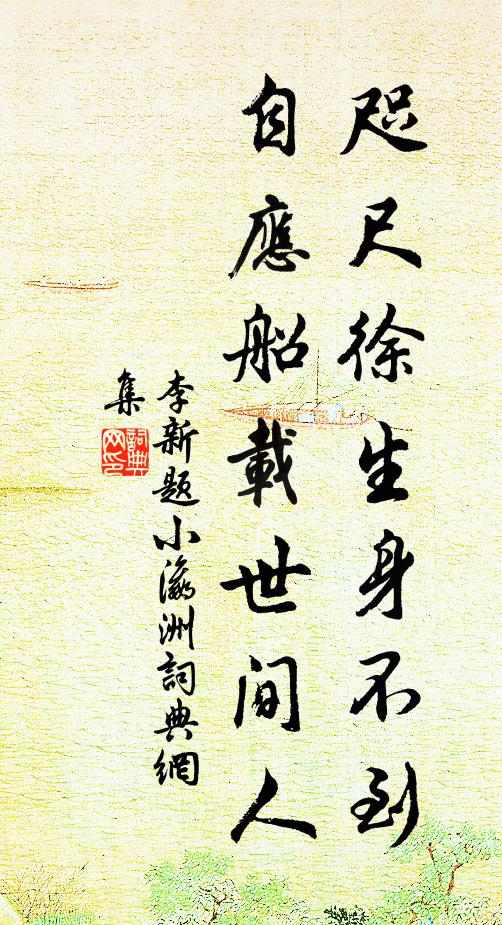 咫尺徐生身不到
自應船載世間人
李新题小瀛洲詞典網
集
詞典
网印